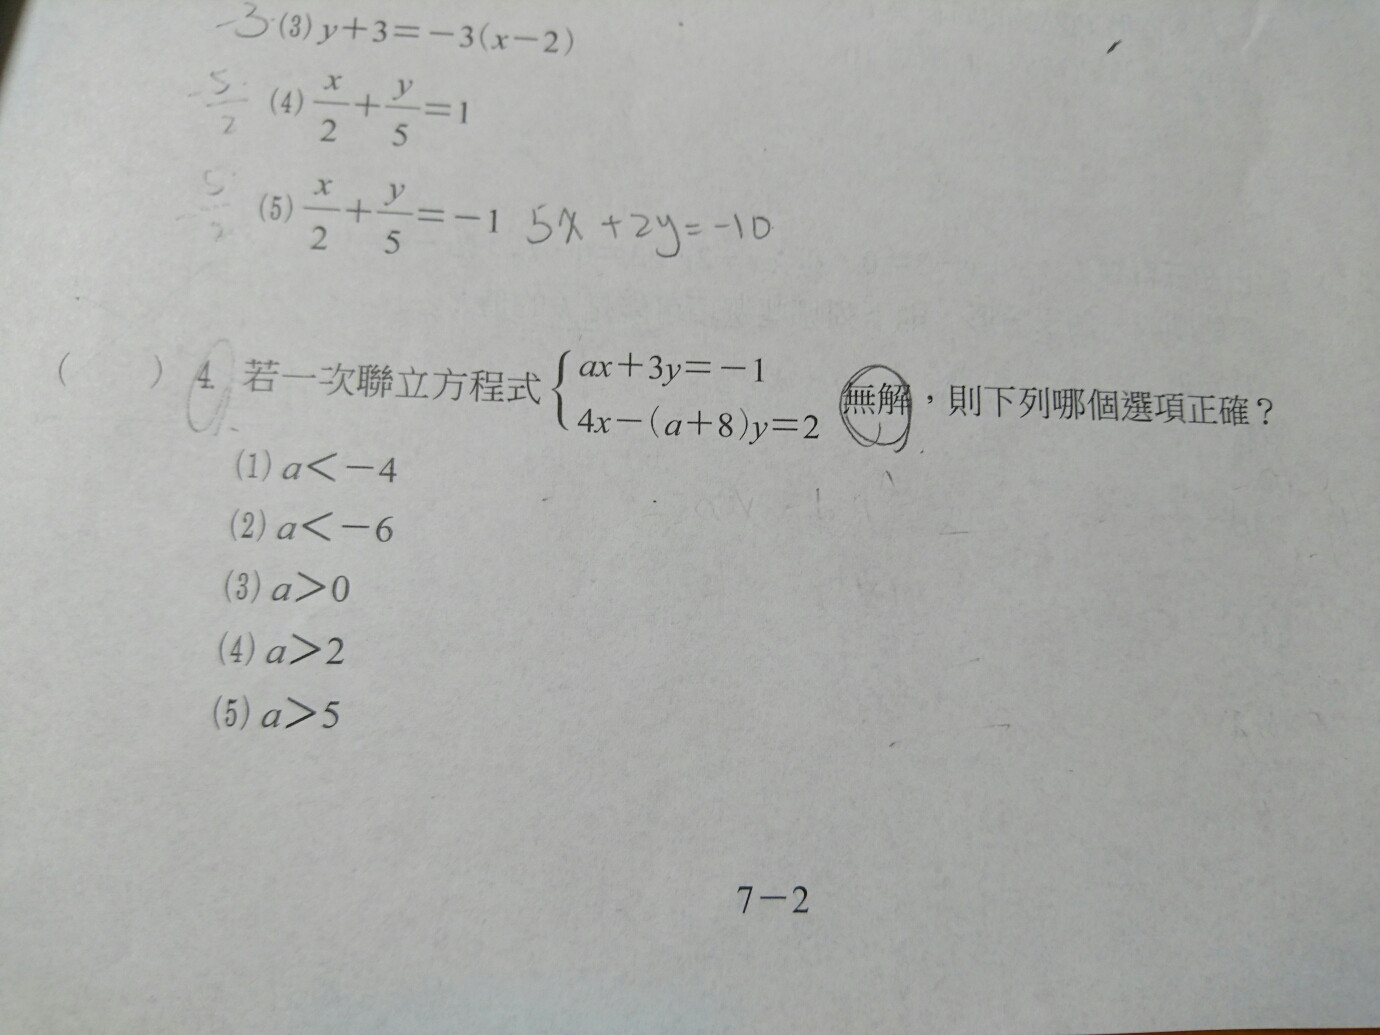 -3 (3) y+3=-3(x-2)
-5/2 (4) x/2+y/5=1
-5/2 (5) x/2+y/5=-1 5x+2y=-10
( ) 4. 若一次聯立方程式{ax+3y=-1 4x-(a+8)y=2 無解，則下列哪個選項正確？
(1) a<-4
(2) a<-6
(3) a>0
(4) a>2
(5) a>5
7-2